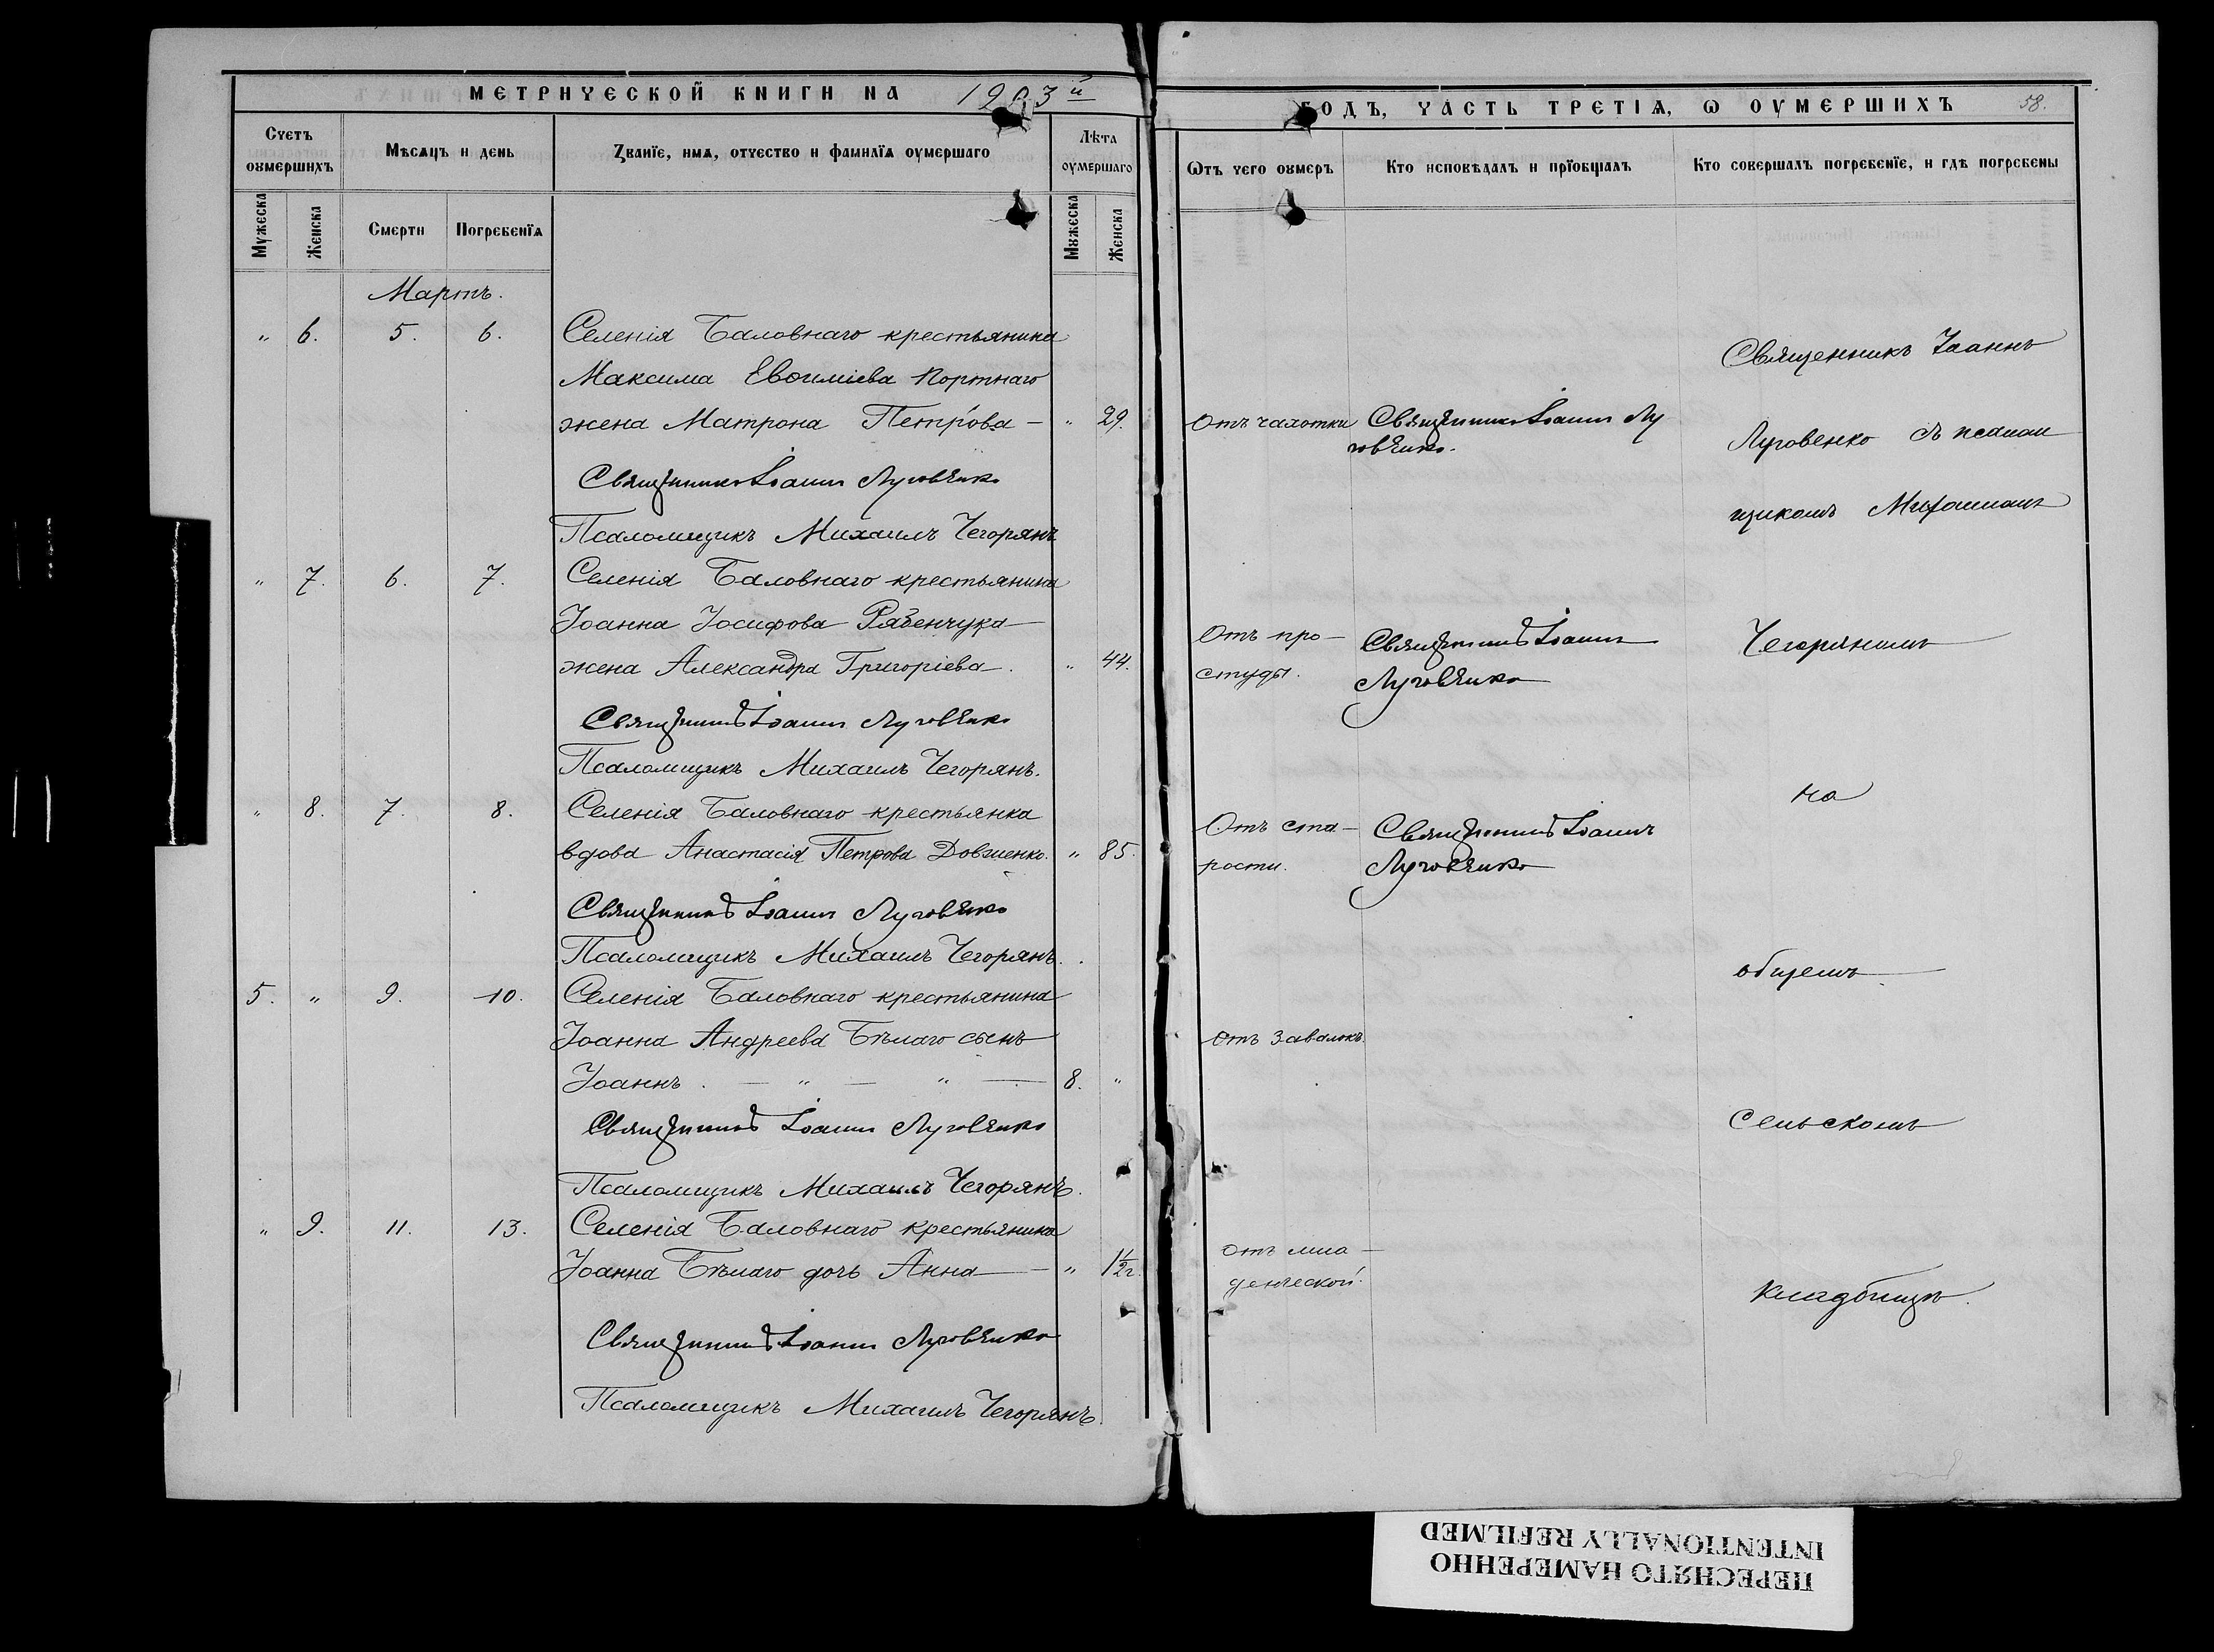 МЕТРИЧЕСКОЙ КНИГИ НА 1903й
ГОДЪ, ЧАСТЬ ТРЕТІѦ, Ѡ ОУМЕРШИХЪ 58.
Счетъ оумершихъ
Мѣсяцъ и день
Званїе, имѧ, отчество и фамилїѧ оумершаго
Лѣта оумершаго
Ѿтъ чего оумеръ
Кто исповѣдалъ и прїобщалъ
Кто совершалъ погребенїе, и гдѣ погребены
Мужеска
Женска
Смерти
Погребенїѧ
Мужеска
Женска
Мартъ.
" 6. 5. 6. Селенія Баловнаго крестьянина
Максима Евѳиміева Портнаго
жена Матрона Петрова — " 29. Отъ чахотки Священникъ Іоаннъ Лу
говенко.
Священникъ Іоаннъ Луговенко
Псаломщикъ Михаилъ Чегорянъ
" 7. 6. 7. Селенія Баловнаго крестьянина
Іоанна Іосифова Рябенчука
жена Александра Григоріева. " 44. Отъ про-
студы. Священникъ Іоаннъ
Луговенко
Священникъ Іоаннъ Луговенко
Псаломщикъ Михаилъ Чегорянъ.
" 8. 7. 8. Селенія Баловнаго крестьянка
вдова Анастасія Петрова Довженко. " 85. Отъ ста-
рости. Священникъ Іоаннъ
Луговенко
Священникъ Іоаннъ Луговенко
Псаломщикъ Михаилъ Чегорянъ.
5. " 9. 10. Селенія Баловнаго крестьянина
Іоанна Андреева Бѣлаго сынъ
Іоаннъ. — " — " — 8. " Отъ завалокъ.
Священникъ Іоаннъ Луговенко
Псаломщикъ Михаилъ Чегорянъ.
" 9. 11. 13. Селенія Баловнаго крестьянина
Іоанна Бѣлаго дочь Анна — " 1½ г. Отъ мла-
денческой.
Священникъ Іоаннъ Луговенко
Псаломщикъ Михаилъ Чегорянъ.
Священникъ Іоаннъ
Луговенко съ псалом
щикомъ Михаиломъ
Чегоряномъ
на
общемъ
Сельскомъ
кладбищѣ.
ПЕРЕСНЯТО НАМЕРЕННО
INTENTIONALLY REFILMED